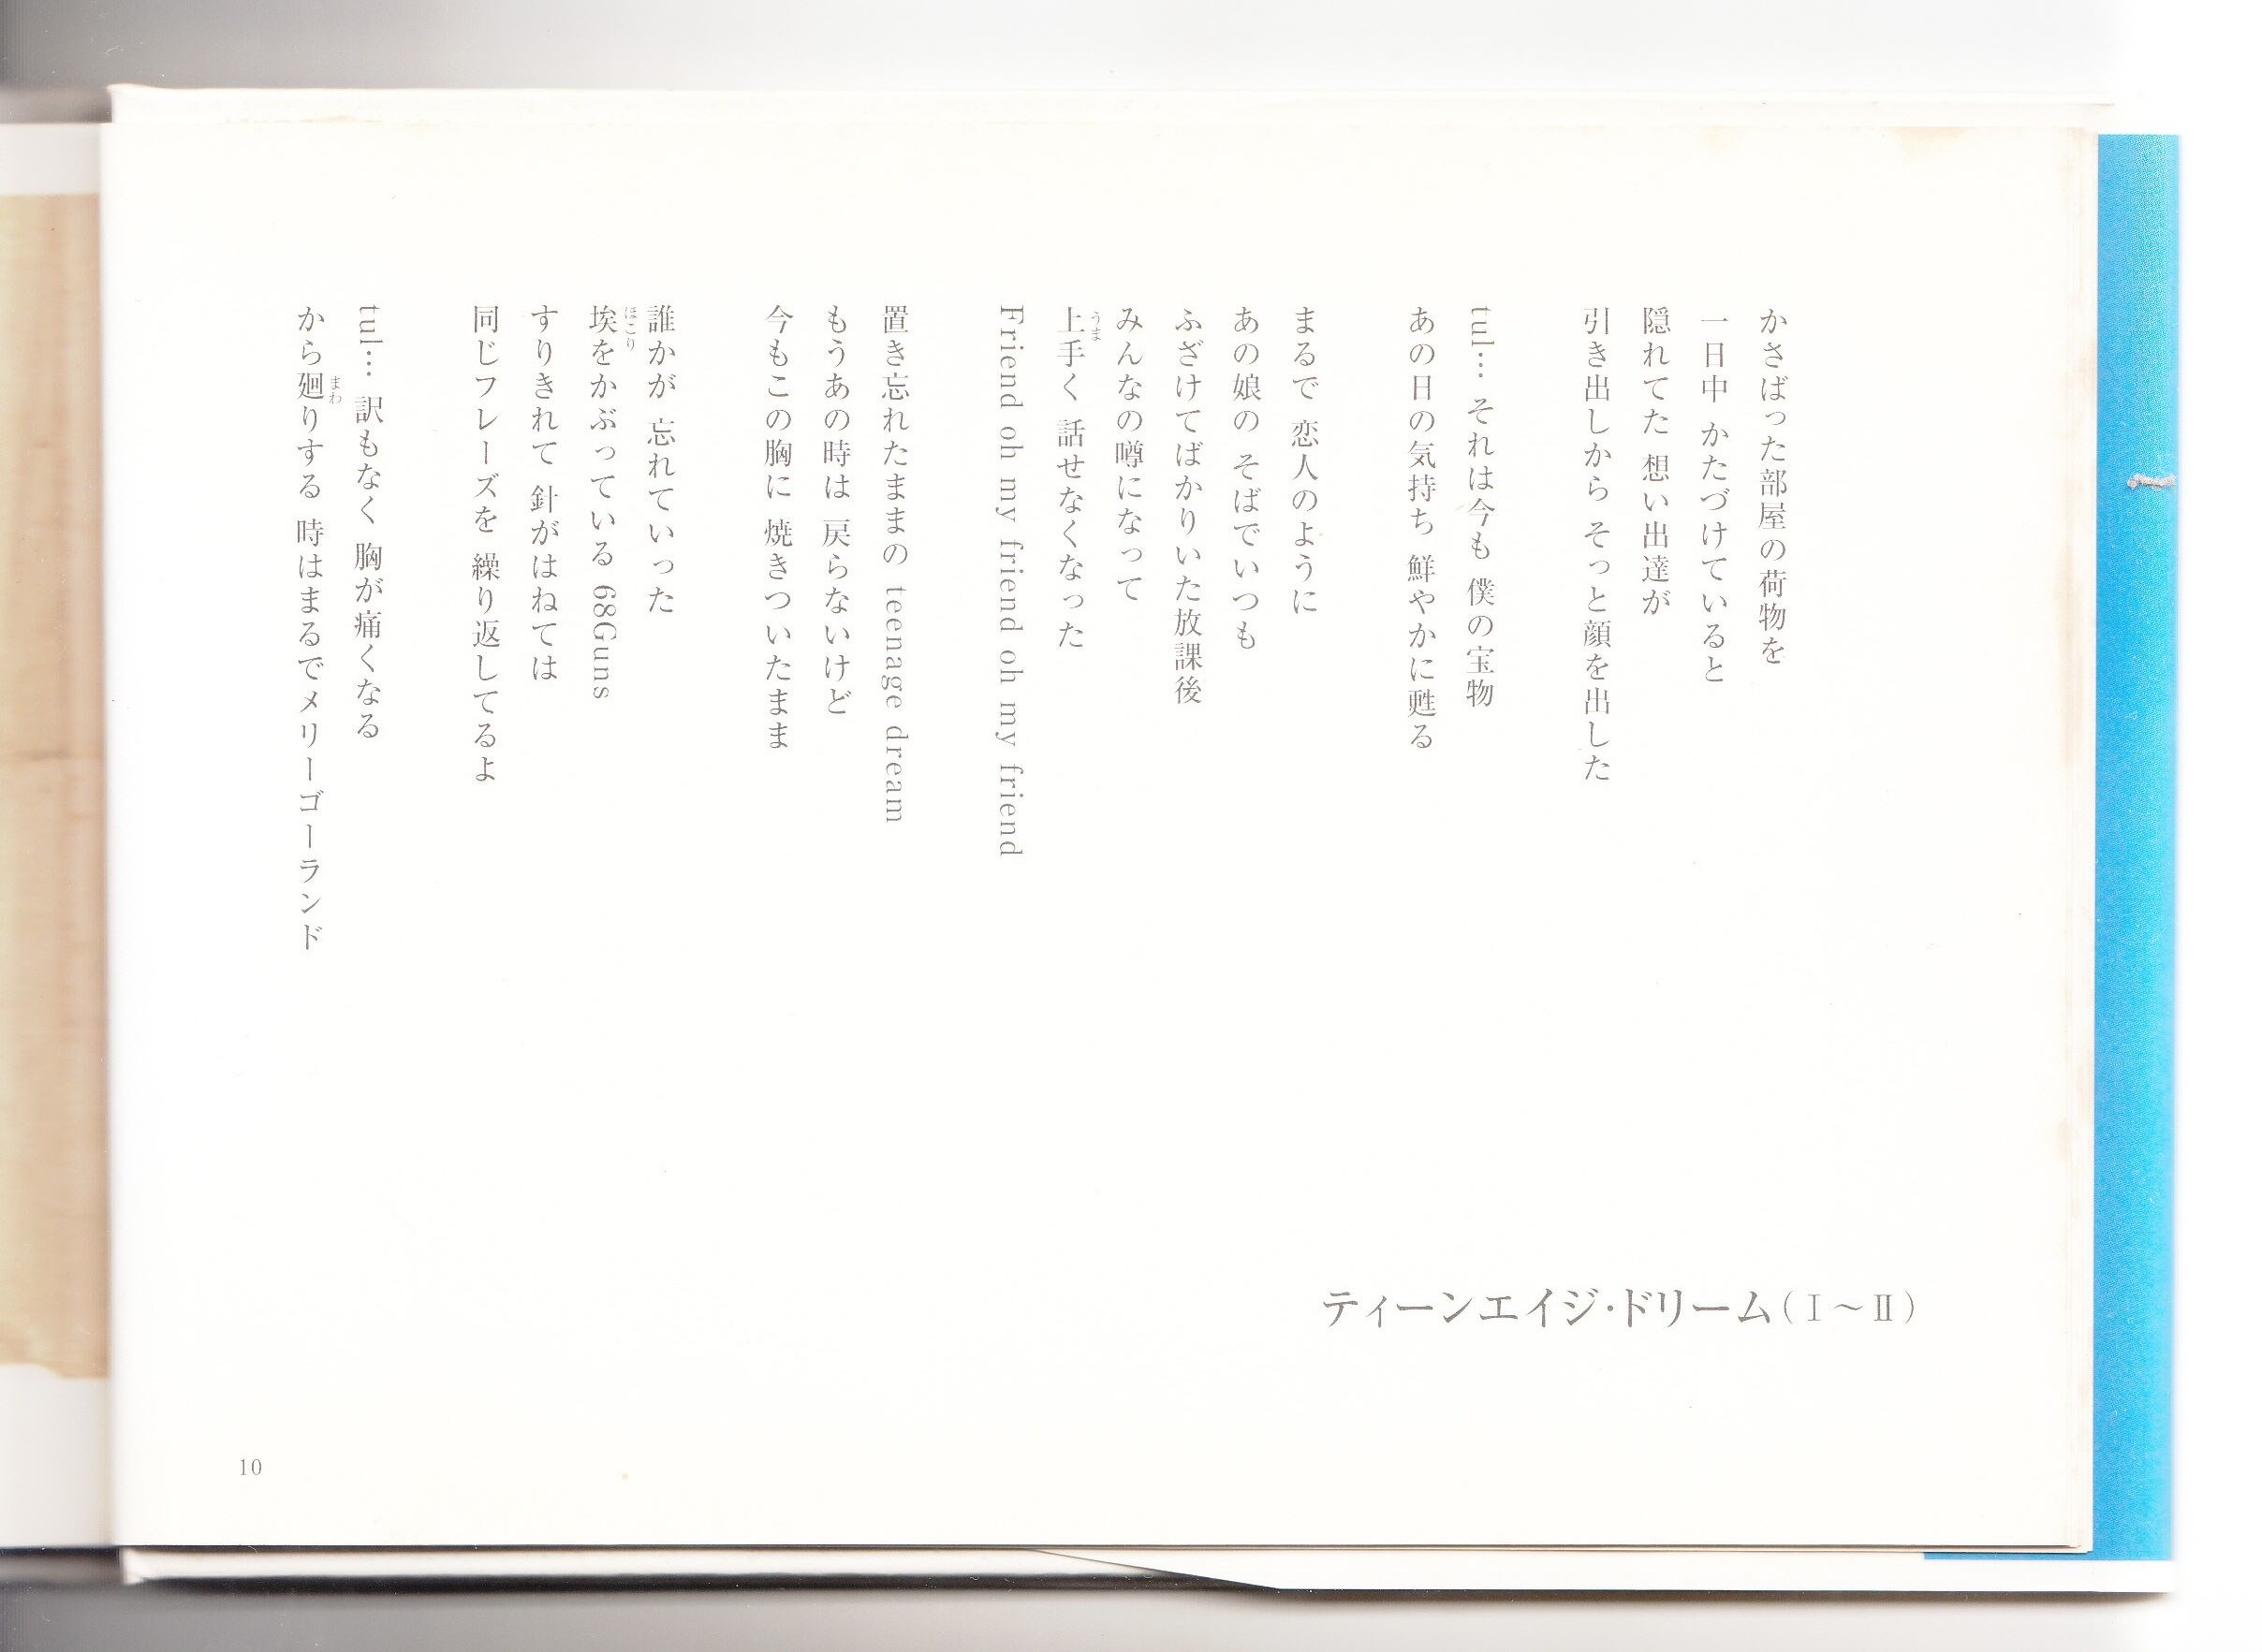 ティーンエイジ・ドリーム(Ⅰ～Ⅱ)
かさばった部屋の荷物を
一日中 かたづけていると
隠れてた 想い出達が
引き出しから そっと顔を出した
tul… それは今も 僕の宝物
あの日の気持ち 鮮やかに甦る
まるで 恋人のように
あの娘の そばでいつも
ふざけてばかりいた放課後
みんなの噂になって
上手く 話せなくなった
うま
Friend oh my friend oh my friend
置き忘れたままの teenage dream
もうあの時は 戻らないけど
今もこの胸に 焼きついたまま
誰かが 忘れていった
埃をかぶっている 68Guns
ほこり
すりきれて 針がはねては
同じフレーズを 繰り返してるよ
tul… 訳もなく 胸が痛くなる
から廻りする 時はまるでメリーゴーランド
まわ
10